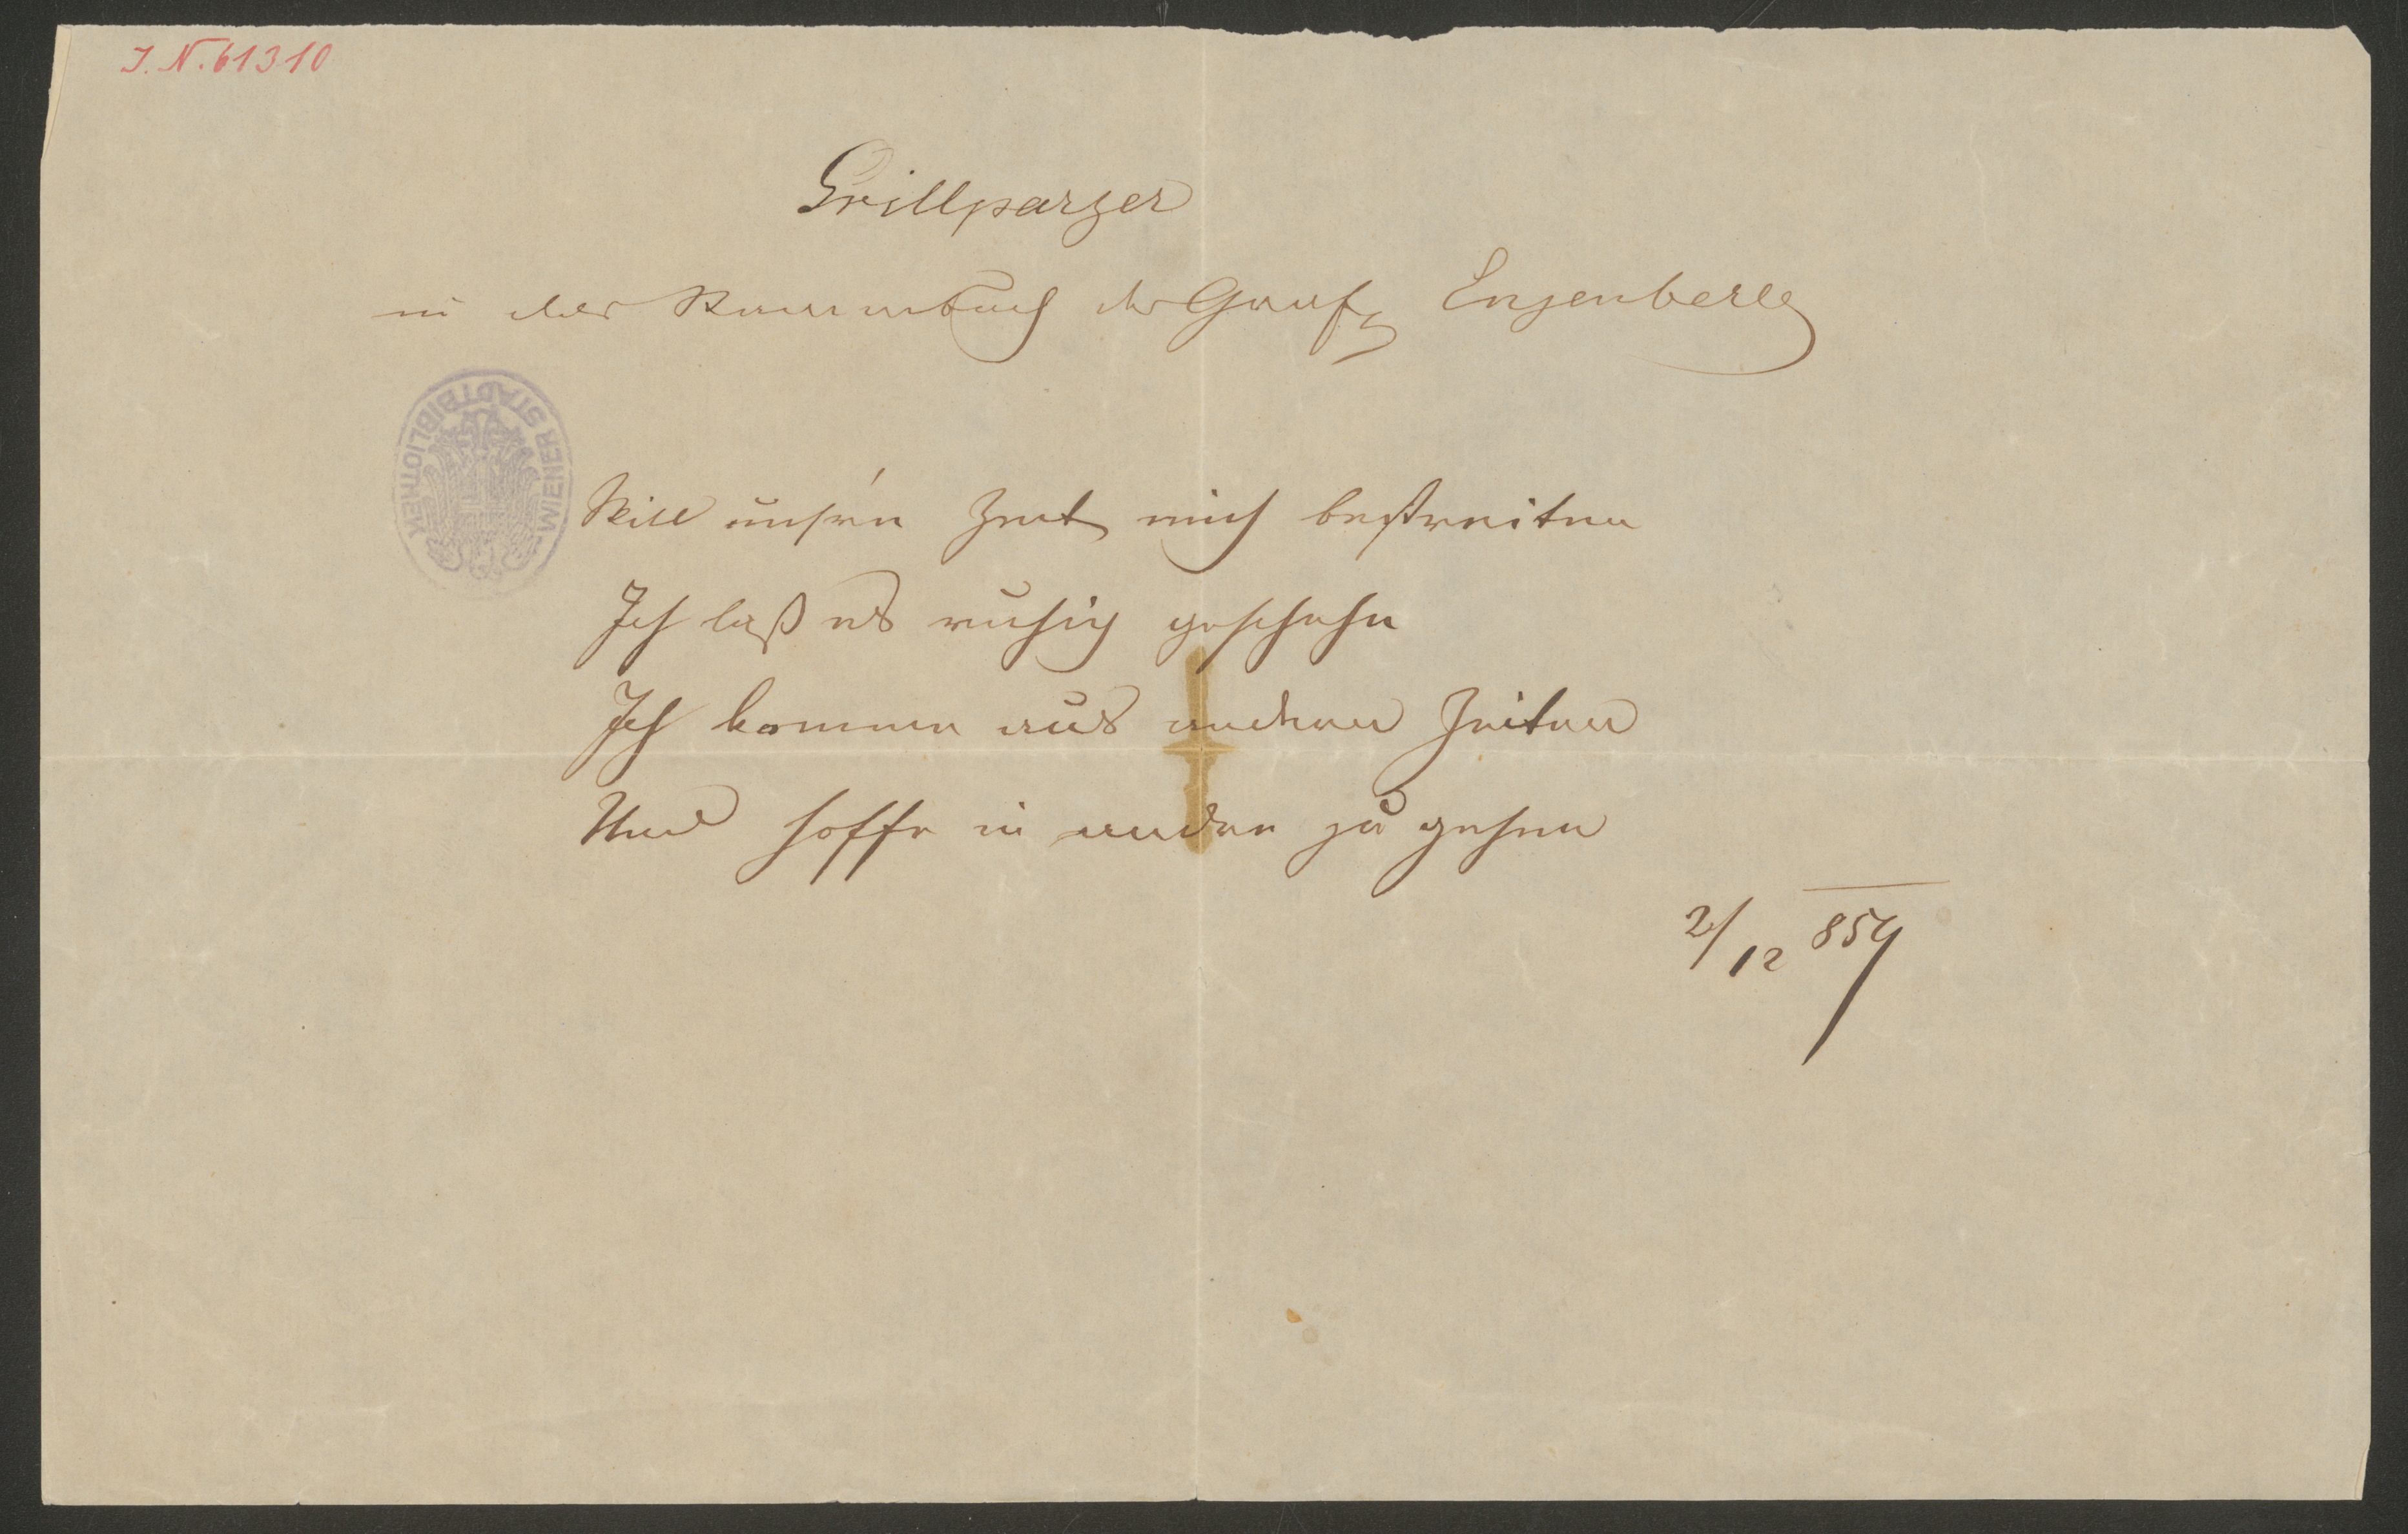 I.N. 61310
Grillparzer
in das Stammbuch der Graf Enzenberg
WIENER STADTBIBLIOTHEK
Will uns're Zeit mich bestreiten
Ich laß es ruhig geschehn
Ich komme aus andern Zeiten
Und hoffe in andre zu gehen
2/12 854